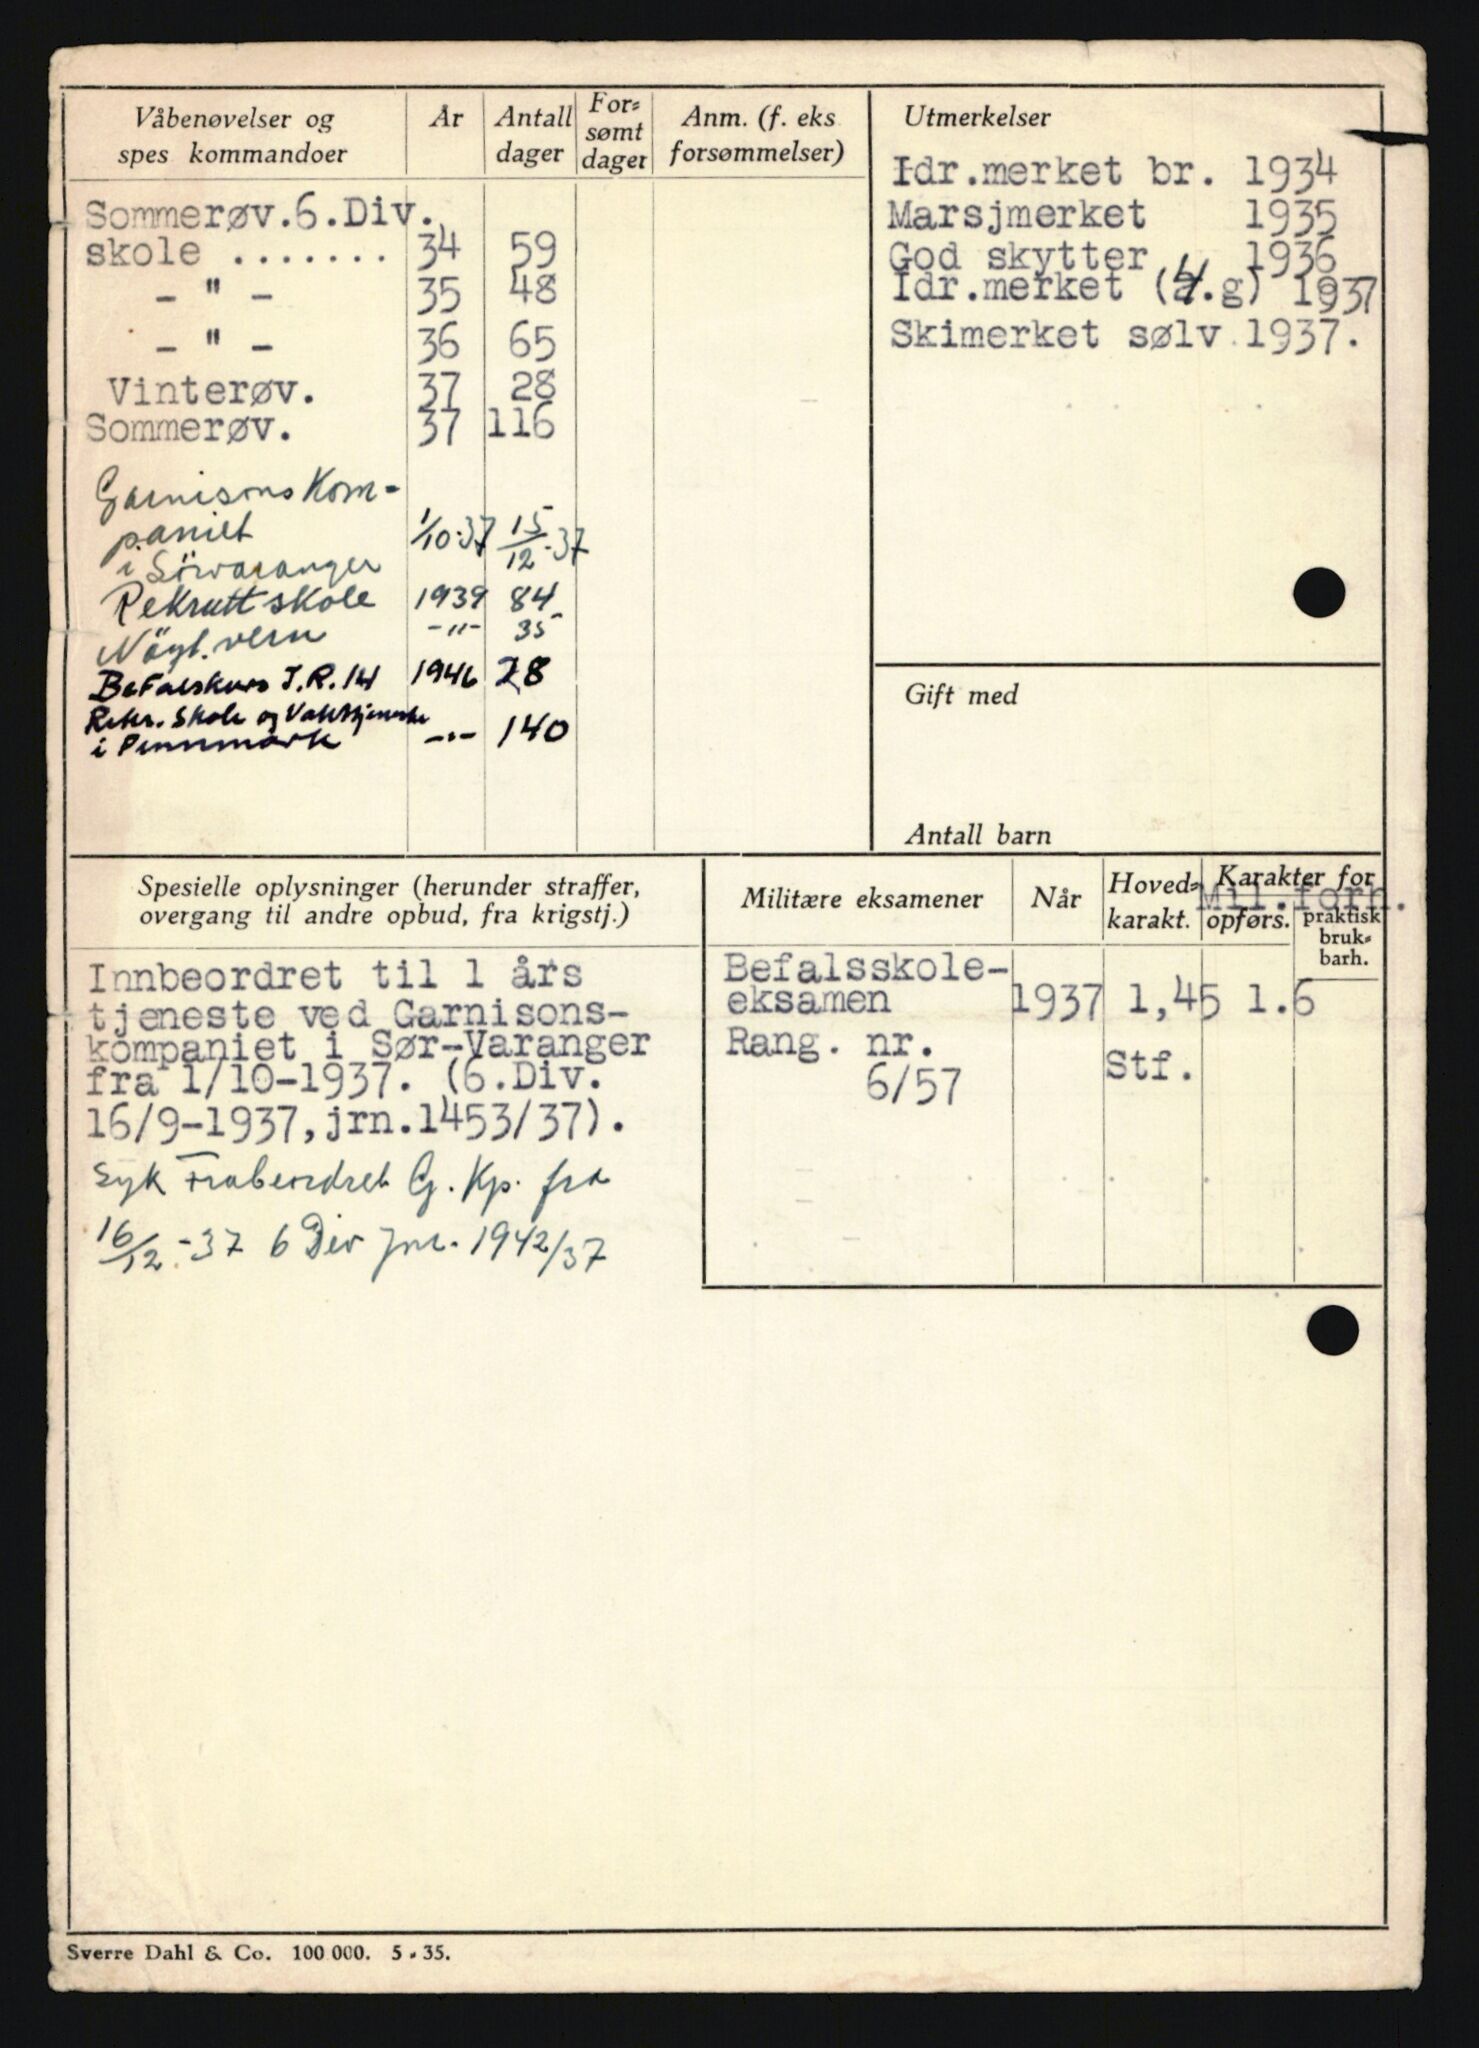 Våbenøvelser og spes kommandoer
År
Antall dager
For-sømt dager
Anm. (f. eks forsømmelser)
Sommerøv.6.Div.
skole ....... 34 59
- " - 35 48
- " - 36 65
Vinterøv. 37 28
Sommerøv. 37 116
Garnisons Kom-
paniet 1/10-37 15/12-37
i Sörvaranger
Rekruttskole 1939 84
Nöyt.vern -"- 35
Befalskurs I.R.14 1946 28
Rekr. Skole og Vakttjeneste
i Finnmark -"- 140
Utmerkelser
Idr.merket br. 1934
Marsjmerket 1935
God skytter 1936
Idr.merket (4.g) 1937
Skimerket sølv 1937.
Gift med
Antall barn
Spesielle oplysninger (herunder straffer,
overgang til andre opbud, fra krigstj.)
Innbeordret til 1 års
tjeneste ved Garnisons-
kompaniet i Sør-Varanger
fra 1/10-1937. (6.Div.
16/9-1937,jrn.1453/37).
Syk Frabeordret G. Kp. fra
16/12-37 6 Div Jnr. 1942/37
Militære eksamener
Når
Hoved-karakt.
Karakter for
Mil.forh.
opførs.
praktisk bruk-barh.
Befalsskole-
eksamen 1937 1,45 1.6
Rang. nr. Stf.
6/57
Sverre Dahl & Co. 100 000. 5-35.